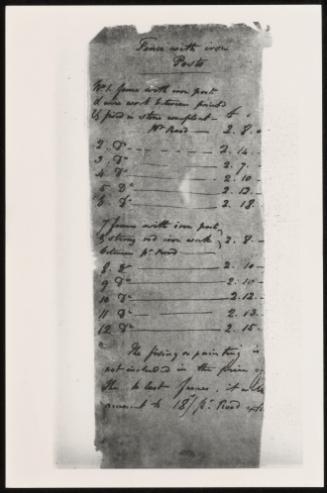 Fence with iron
Posts
No 1. fence with iron post
& wire work between
& fixed in stone compleat - £
Pr Rood — 2. 8. 0
2. Do — 2. 14 -
3. Do — 2. 7. -
4 Do — 2. 10 -
5 Do — 2. 12. -
6 Do — 2. 18.
7 fence with iron post
& strong rod iron work 2. 8 -
between pr Rood
8 Do — 2. 10 -
9 Do — 2. 10 -
10 Do — 2. 12. -
11 Do — 2. 13. -
12 Do — 2. 15 -
The fixing & painting is
not included in the price of
The 6 last fences. it will
amount to 18/ pr. Rood